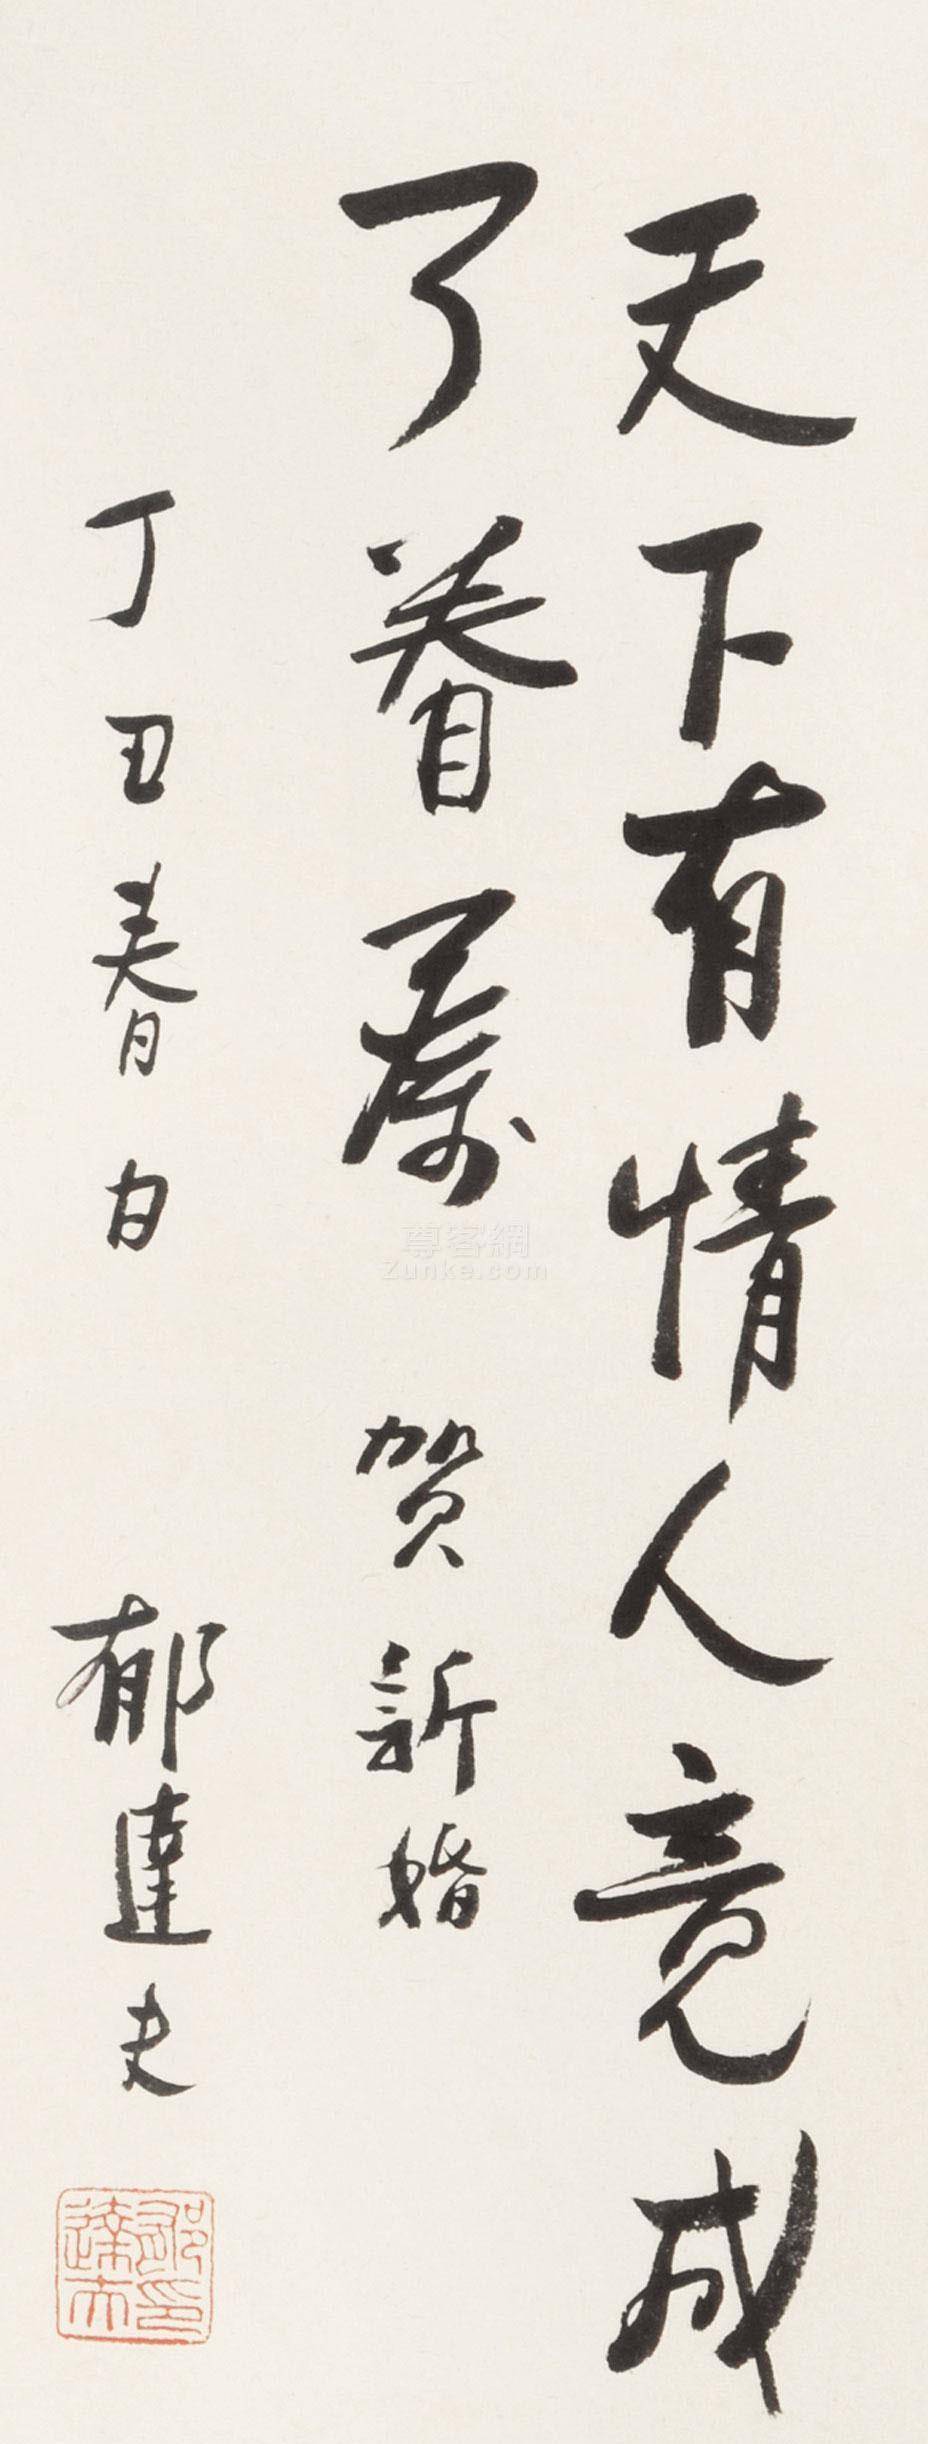 天下有情人竟成
了眷属 贺新婚
丁丑春日 郁達夫
郁印達夫
尊客網
Zunke.com